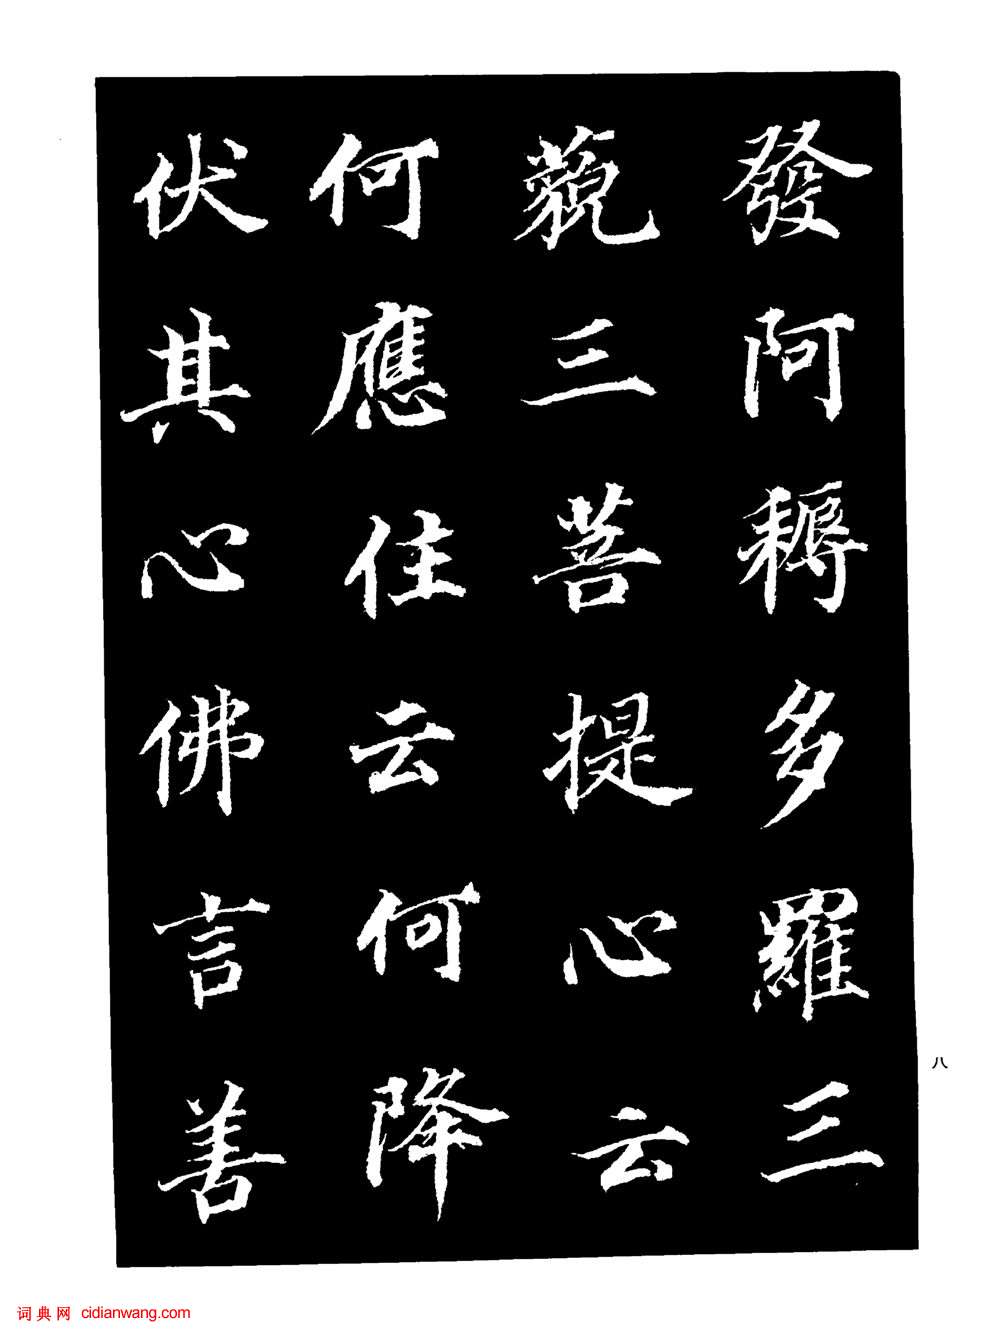 發阿耨多羅三
藐三菩提心云
何應住云何降
伏其心佛言善
八
词典网 cidianwang.com